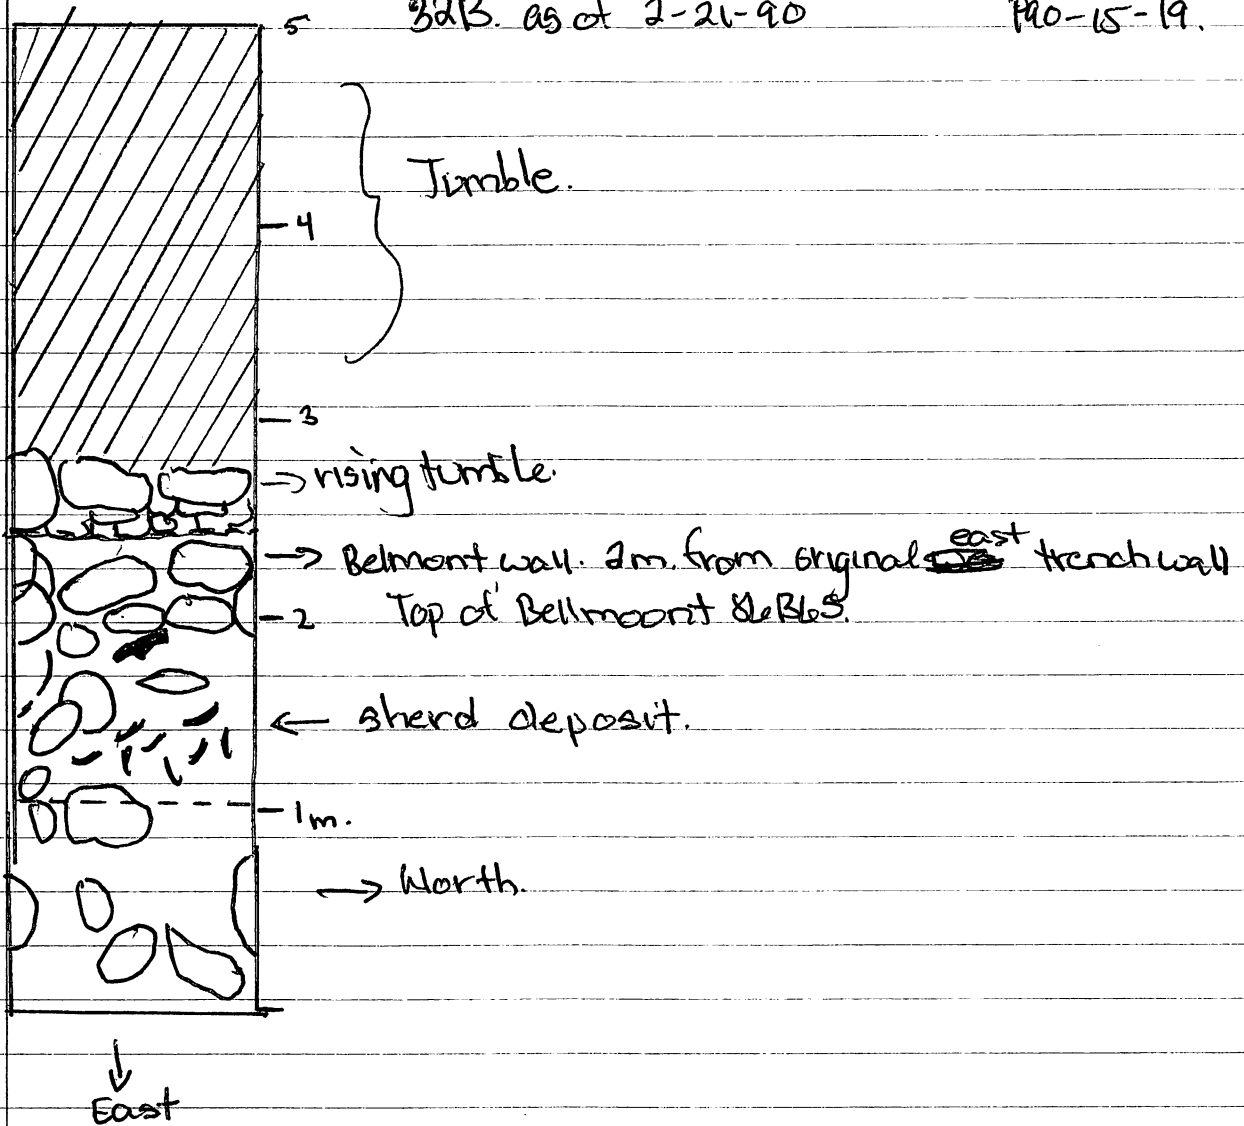 32B. as of 2-21-90 P90-15-19.
5
Tumble.
4
3
→ rising tumble.
→ Belmont wall. 2m. from original east trench wall
2 Top of Bellmoont
← sherd deposit.
1m.
→ Worth.
↓
East